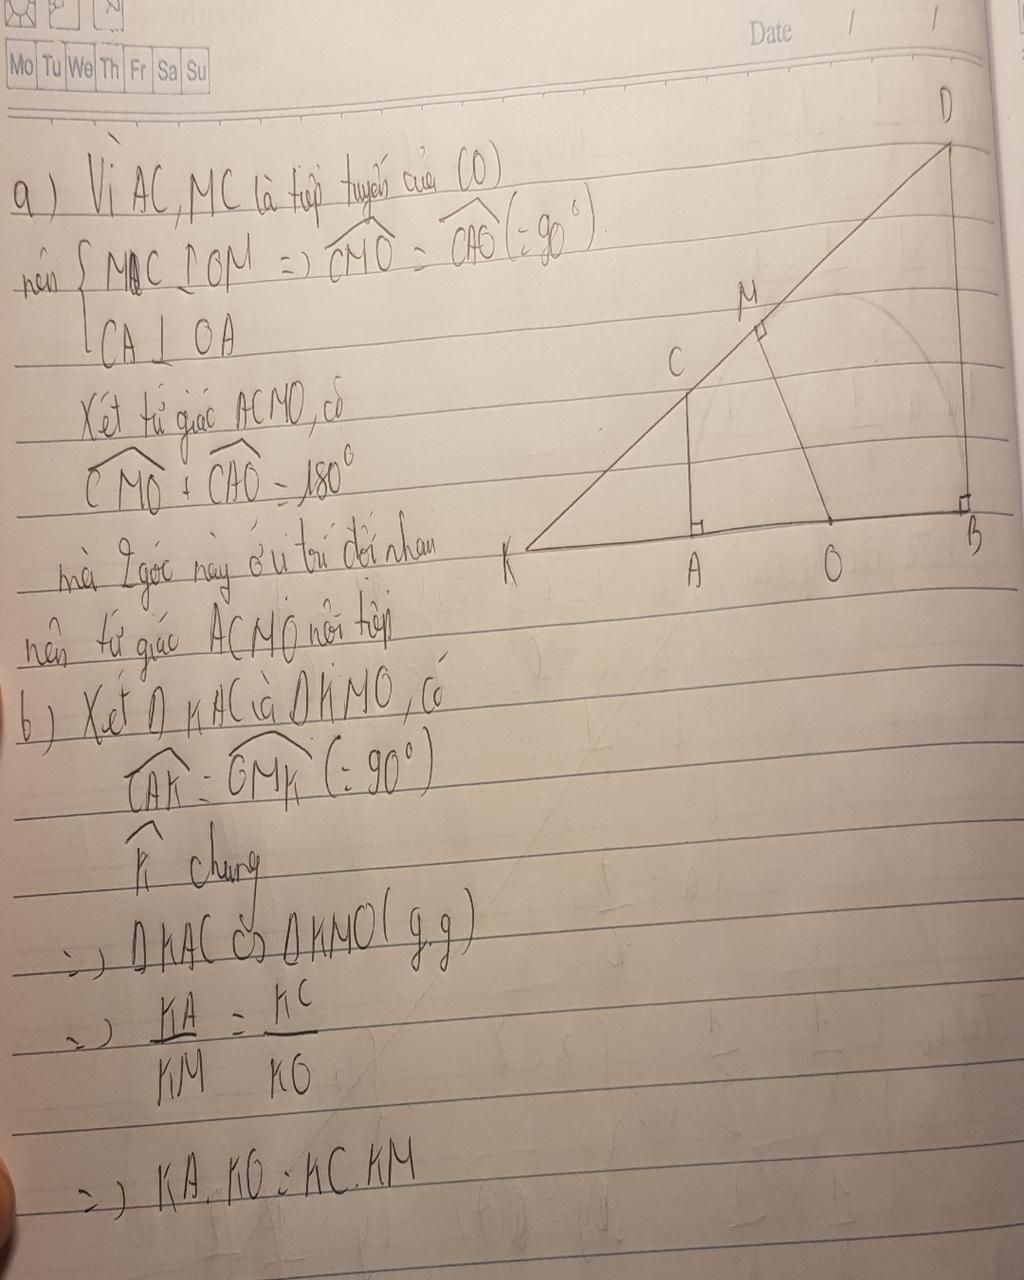 Date / /
Mo Tu We Th Fr Sa Su
a) Vì AC, MC là tiếp tuyến của (O)
nên { MC ⊥ OM => CMO = CAO (= 90°)
CA ⊥ OA
Xét tứ giác ACMO, có
CMO + CAO = 180°
mà 2 góc này ở vị trí đối nhau
nên tứ giác ACMO nội tiếp
b) Xét Δ KAC và Δ KMO, có
CAK = OMK (= 90°)
K chung
=> Δ KAC ∽ Δ KMO (g.g)
=> KA/KM = KC/KO
=> KA. KO = KC. KM
D
M
C
K
A
O
B